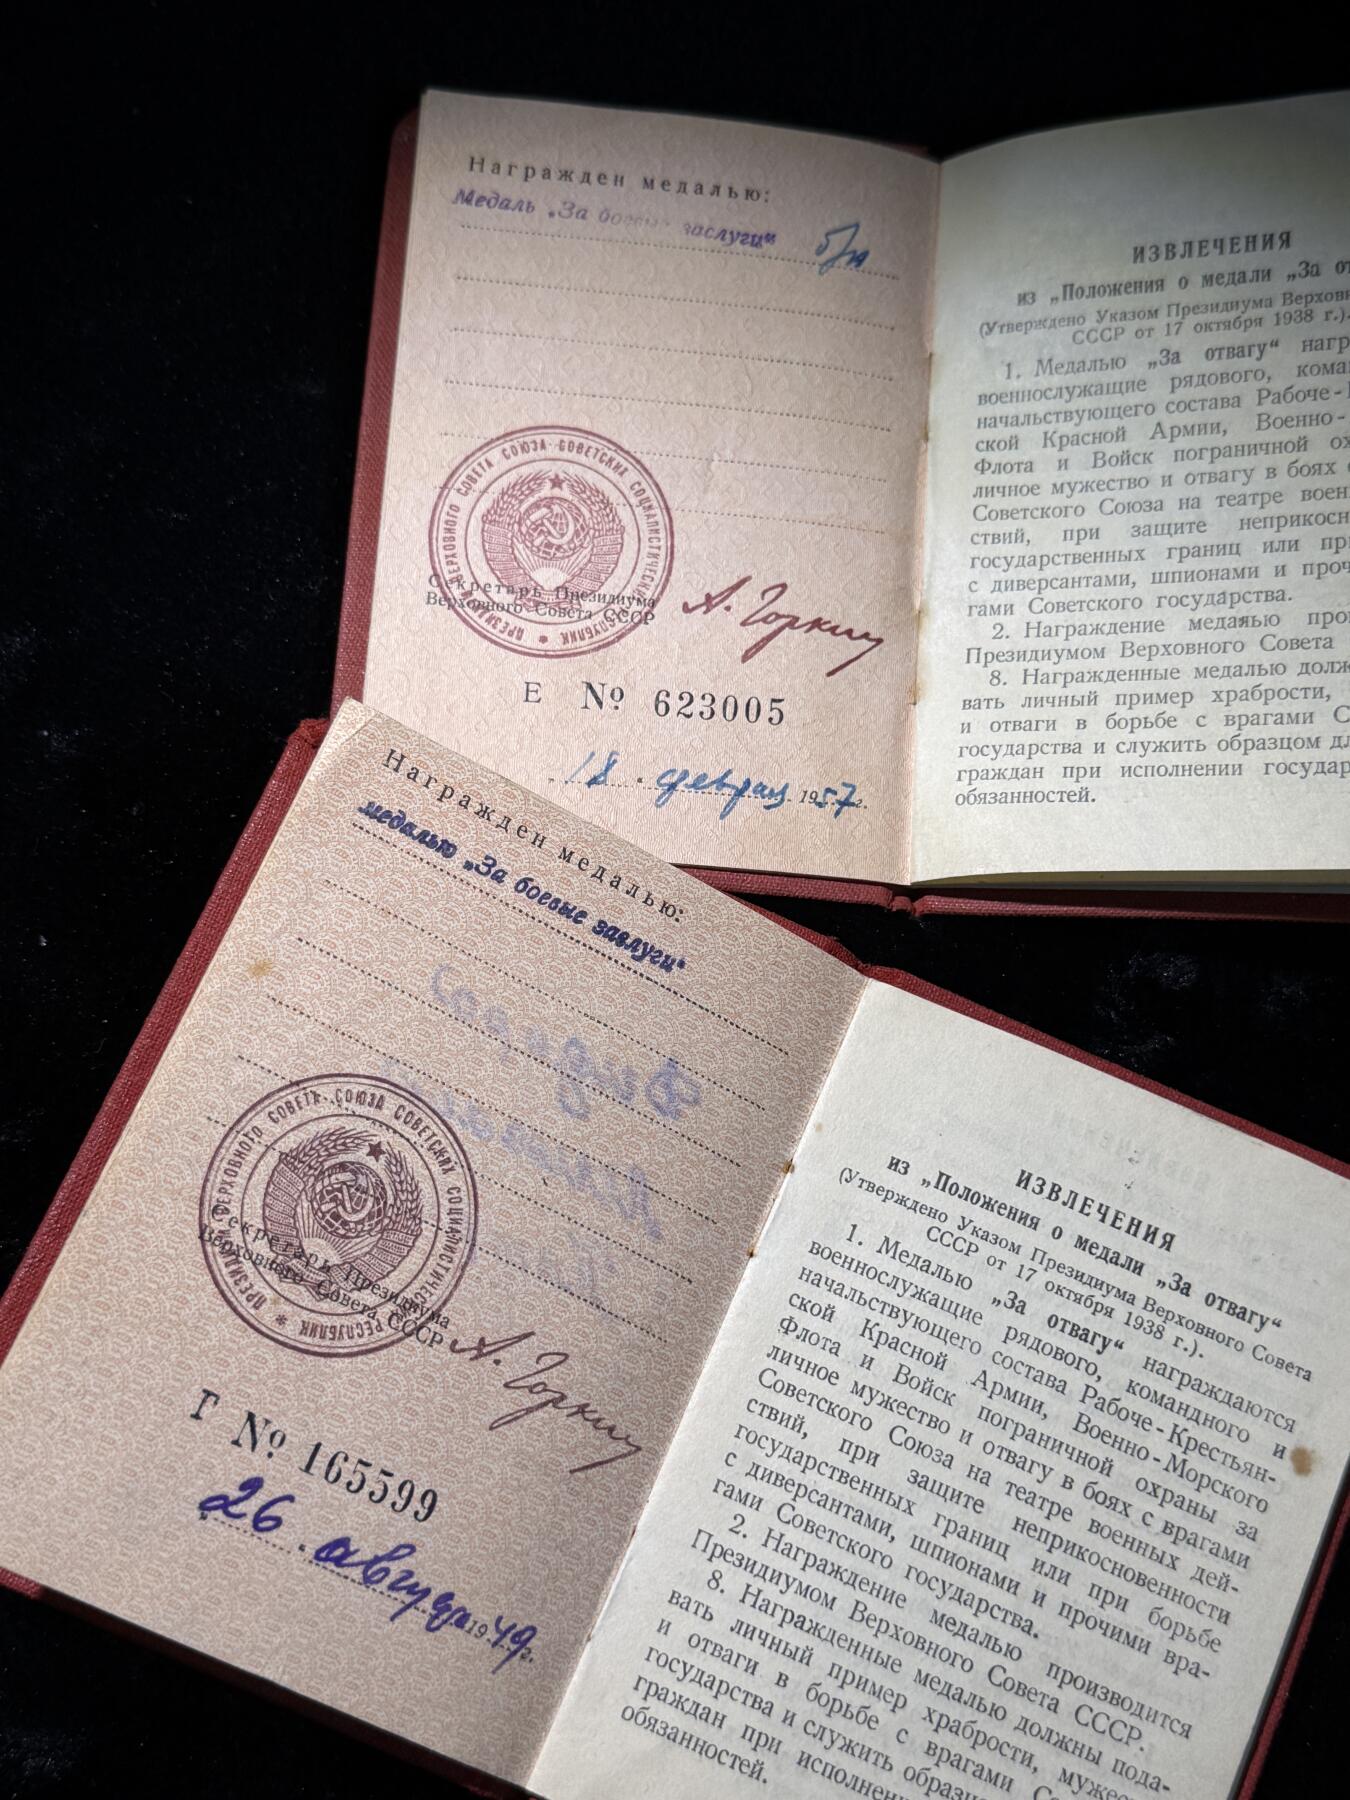 Награжден медалью:
Медаль „За боевые заслуги“ б/н
ПРЕЗИДИУМ ВЕРХОВНОГО СОВЕТА СОЮЗА СОВЕТСКИХ СОЦИАЛИСТИЧЕСКИХ РЕСПУБЛИК
Секретарь Президиума
Верховного Совета СССР
А. Горкин
Е № 623005
18 февраля 1957 г.
ИЗВЛЕЧЕНИЯ
из „Положения о медали „За от
(Утверждено Указом Президиума Верховн
СССР от 17 октября 1938 г.).
1. Медалью „За отвагу“ нагр
военнослужащие рядового, кома
начальствующего состава Рабоче-
ской Красной Армии, Военно-
Флота и Войск пограничной ох
личное мужество и отвагу в боях
Советского Союза на театре воен
ствий, при защите неприкосн
государственных границ или пр
с диверсантами, шпионами и проч
гами Советского государства.
2. Награждение медалью про
Президиумом Верховного Совета
8. Награжденные медалью долж
вать личный пример храбрости,
и отваги в борьбе с врагами С
государства и служить образцом дл
граждан при исполнении государ
обязанностей.
Награжден медалью:
медалью „За боевые заслуги“
ПРЕЗИДИУМ ВЕРХОВНОГО СОВЕТА СОЮЗА СОВЕТСКИХ СОЦИАЛИСТИЧЕСКИХ РЕСПУБЛИК
Секретарь Президиума
Верховного Совета СССР
А. Горкин
Г № 165599
26 августа 1949 г.
ИЗВЛЕЧЕНИЯ
из „Положения о медали „За отвагу“
(Утверждено Указом Президиума Верховного Совета
СССР от 17 октября 1938 г.).
1. Медалью „За отвагу“ награждаются
военнослужащие рядового, командного и
начальствующего состава Рабоче-Крестьян-
ской Красной Армии, Военно-Морского
Флота и Войск пограничной охраны за
личное мужество и отвагу в боях с врагами
Советского Союза на театре военных дей-
ствий, при защите неприкосновенности
государственных границ или при борьбе
с диверсантами, шпионами и прочими вра-
гами Советского государства.
2. Награждение медалью производится
Президиумом Верховного Совета СССР.
8. Награжденные медалью должны пода-
вать личный пример храбрости, мужес
и отваги в борьбе с врагами Со
государства и служить образцо
граждан при исполнен
обязанностей.